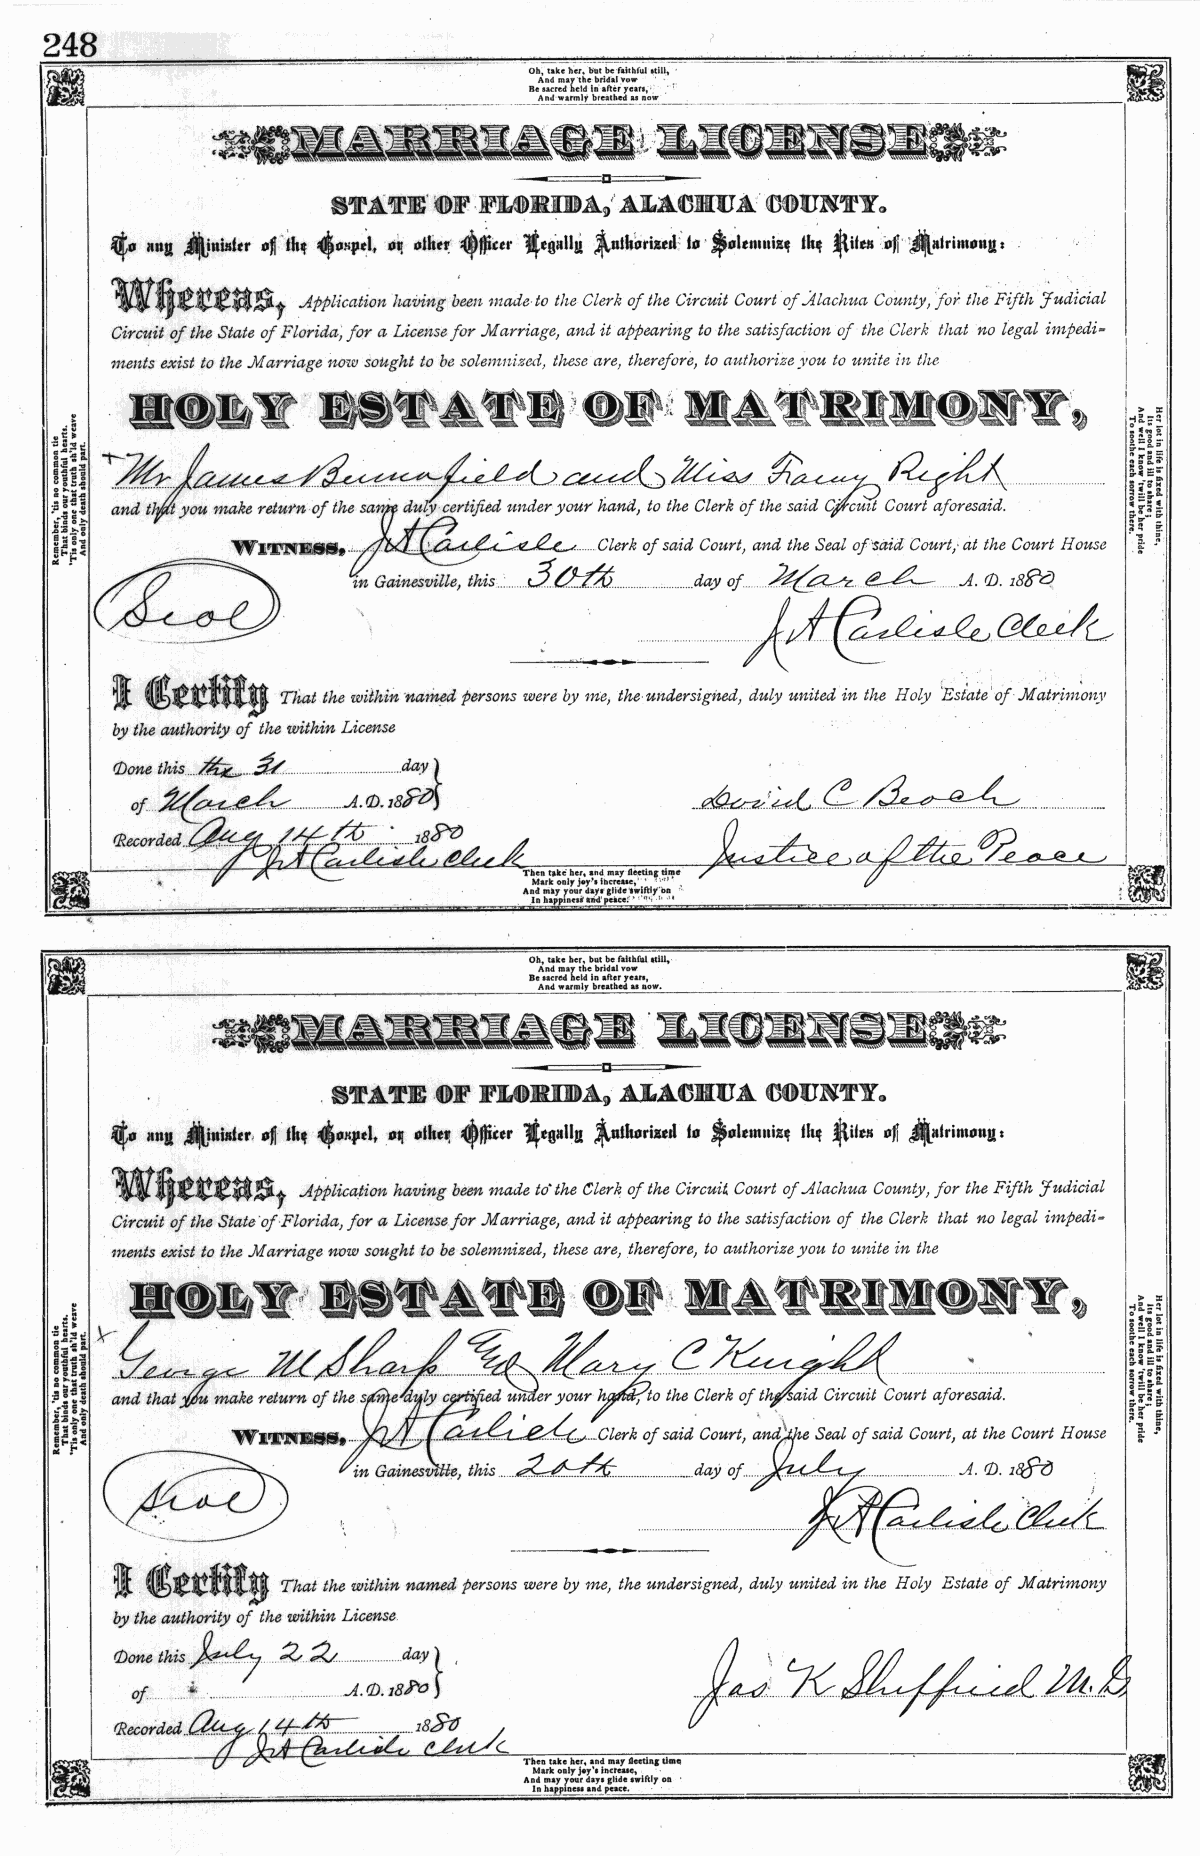 248
Oh, take her, but be faithful still,
And may the bridal vow
Be sacred held in after years,
And warmly breathed as now
MARRIAGE LICENSE
STATE OF FLORIDA, ALACHUA COUNTY.
To any Minister of the Gospel, or other Officer Legally Authorized to Solemnize the Rites of Matrimony:
Whereas, Application having been made to the Clerk of the Circuit Court of Alachua County, for the Fifth Judicial
Circuit of the State of Florida, for a License for Marriage, and it appearing to the satisfaction of the Clerk that no legal impedi-
ments exist to the Marriage now sought to be solemnized, these are, therefore, to authorize you to unite in the
HOLY ESTATE OF MATRIMONY,
Mr James Bumnfield and Miss Fanny Right
and that you make return of the same duly certified under your hand, to the Clerk of the said Circuit Court aforesaid.
WITNESS, J A Carlisle Clerk of said Court, and the Seal of said Court, at the Court House
in Gainesville, this 30th day of March A. D. 1880
Seal
J A Carlisle Clerk
I Certify That the within named persons were by me, the undersigned, duly united in the Holy Estate of Matrimony
by the authority of the within License
Done this the 31 day
of March A. D. 1880
David C Beach
Recorded Aug 14th 1880
J A Carlisle Clerk
Justice of the Peace
Then take her, and may fleeting time
Mark only joy's increase,
And may your days glide swiftly on
In happiness and peace.
Remember, 'tis no common tie
That binds our youthful hearts.
'Tis only one that truth sh'ld weave
And only death should part.
Her lot in life is fixed with thine,
Its good and ill to share;
And well I know 'twill be her pride
To soothe each sorrow there.
Oh, take her, but be faithful still,
And may the bridal vow
Be sacred held in after years,
And warmly breathed as now.
MARRIAGE LICENSE
STATE OF FLORIDA, ALACHUA COUNTY.
To any Minister of the Gospel, or other Officer Legally Authorized to Solemnize the Rites of Matrimony:
Whereas, Application having been made to the Clerk of the Circuit Court of Alachua County, for the Fifth Judicial
Circuit of the State of Florida, for a License for Marriage, and it appearing to the satisfaction of the Clerk that no legal impedi-
ments exist to the Marriage now sought to be solemnized, these are, therefore, to authorize you to unite in the
HOLY ESTATE OF MATRIMONY,
George M Sharp And Mary C Knight
and that you make return of the same duly certified under your hand, to the Clerk of the said Circuit Court aforesaid.
WITNESS, J A Carlisle Clerk of said Court, and the Seal of said Court, at the Court House
in Gainesville, this 20th day of July A. D. 1880
Seal
J A Carlisle Clerk
I Certify That the within named persons were by me, the undersigned, duly united in the Holy Estate of Matrimony
by the authority of the within License
Done this July 22 day
of A. D. 1880
Jas K Sheffield M. G.
Recorded Aug 14th 1880
J A Carlisle Clerk
Then take her, and may fleeting time
Mark only joy's increase,
And may your days glide swiftly on
In happiness and peace.
Remember, 'tis no common tie
That binds our youthful hearts.
'Tis only one that truth sh'ld weave
And only death should part.
Her lot in life is fixed with thine,
Its good and ill to share;
And well I know 'twill be her pride
To soothe each sorrow there.